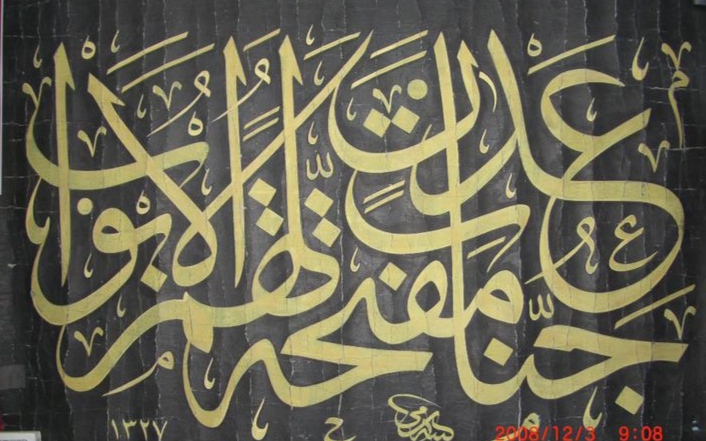 جنات عدن مفتحة لهم الأبواب
١٣٢٧
2008/12/3 9:08